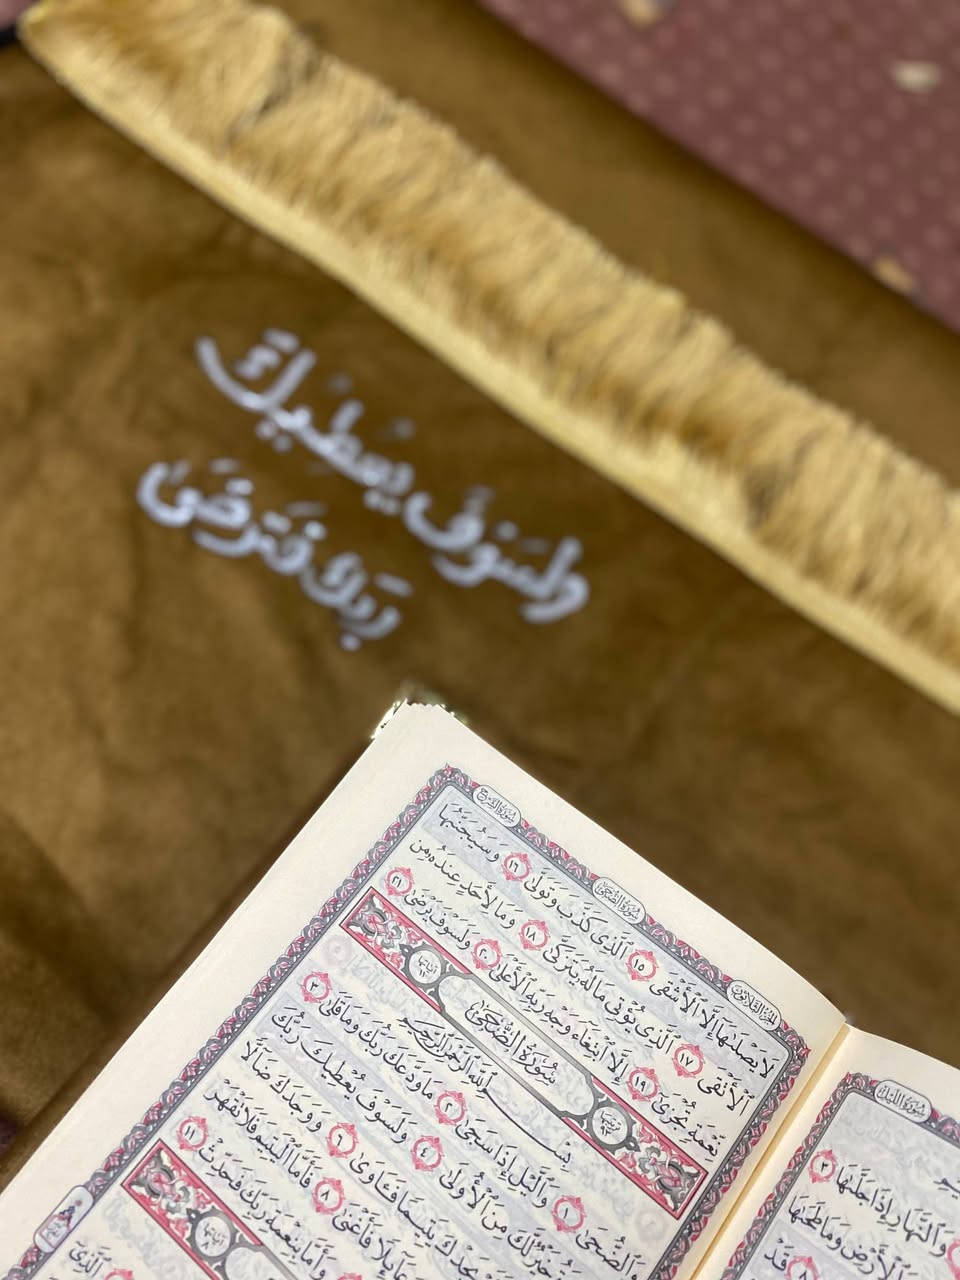 ولسوف يعطيك
ربك فترضى
سورة الشرح
سورة الضحى
الجزء الثلاثون
لَا يَصْلَىٰهَآ إِلَّا ٱلْأَشْقَى ١٥ ٱلَّذِى كَذَّبَ وَتَوَلَّىٰ ١٦ وَسَيُجَنَّبُهَا
ٱلْأَتْقَى ١٧ ٱلَّذِى يُؤْتِى مَالَهُۥ يَتَزَكَّىٰ ١٨ وَمَا لِأَحَدٍ عِندَهُۥ مِن
نِّعْمَةٍ تُجْزَىٰٓ ١٩ إِلَّا ٱبْتِغَآءَ وَجْهِ رَبِّهِ ٱلْأَعْلَىٰ ٢٠ وَلَسَوْفَ يَرْضَىٰ ٢١
سُورَةُ الضُّحَىٰ
بِسْمِ ٱللَّهِ ٱلرَّحْمَٰنِ ٱلرَّحِيمِ
وَٱلضُّحَىٰ ١ وَٱلَّيْلِ إِذَا سَجَىٰ ٢ مَا وَدَّعَكَ رَبُّكَ وَمَا قَلَىٰ ٣
خَيْرٌ لَّكَ مِنَ ٱلْأُولَىٰ ٤ وَلَسَوْفَ يُعْطِيكَ رَبُّكَ
يَجِدْكَ يَتِيمًا فَـَٔاوَىٰ ٦ وَوَجَدَكَ ضَآلًّا
عَآئِلًا فَأَغْنَىٰ ٨ فَأَمَّا ٱلْيَتِيمَ فَلَا تَقْهَرْ
وَأَمَّا بِنِعْمَةِ رَبِّكَ فَحَدِّثْ ١١
سورة الليل
وَٱلنَّهَارِ إِذَا جَلَّىٰهَا ٣
وَٱلْأَرْضِ وَمَا طَحَىٰهَا
قَدْ